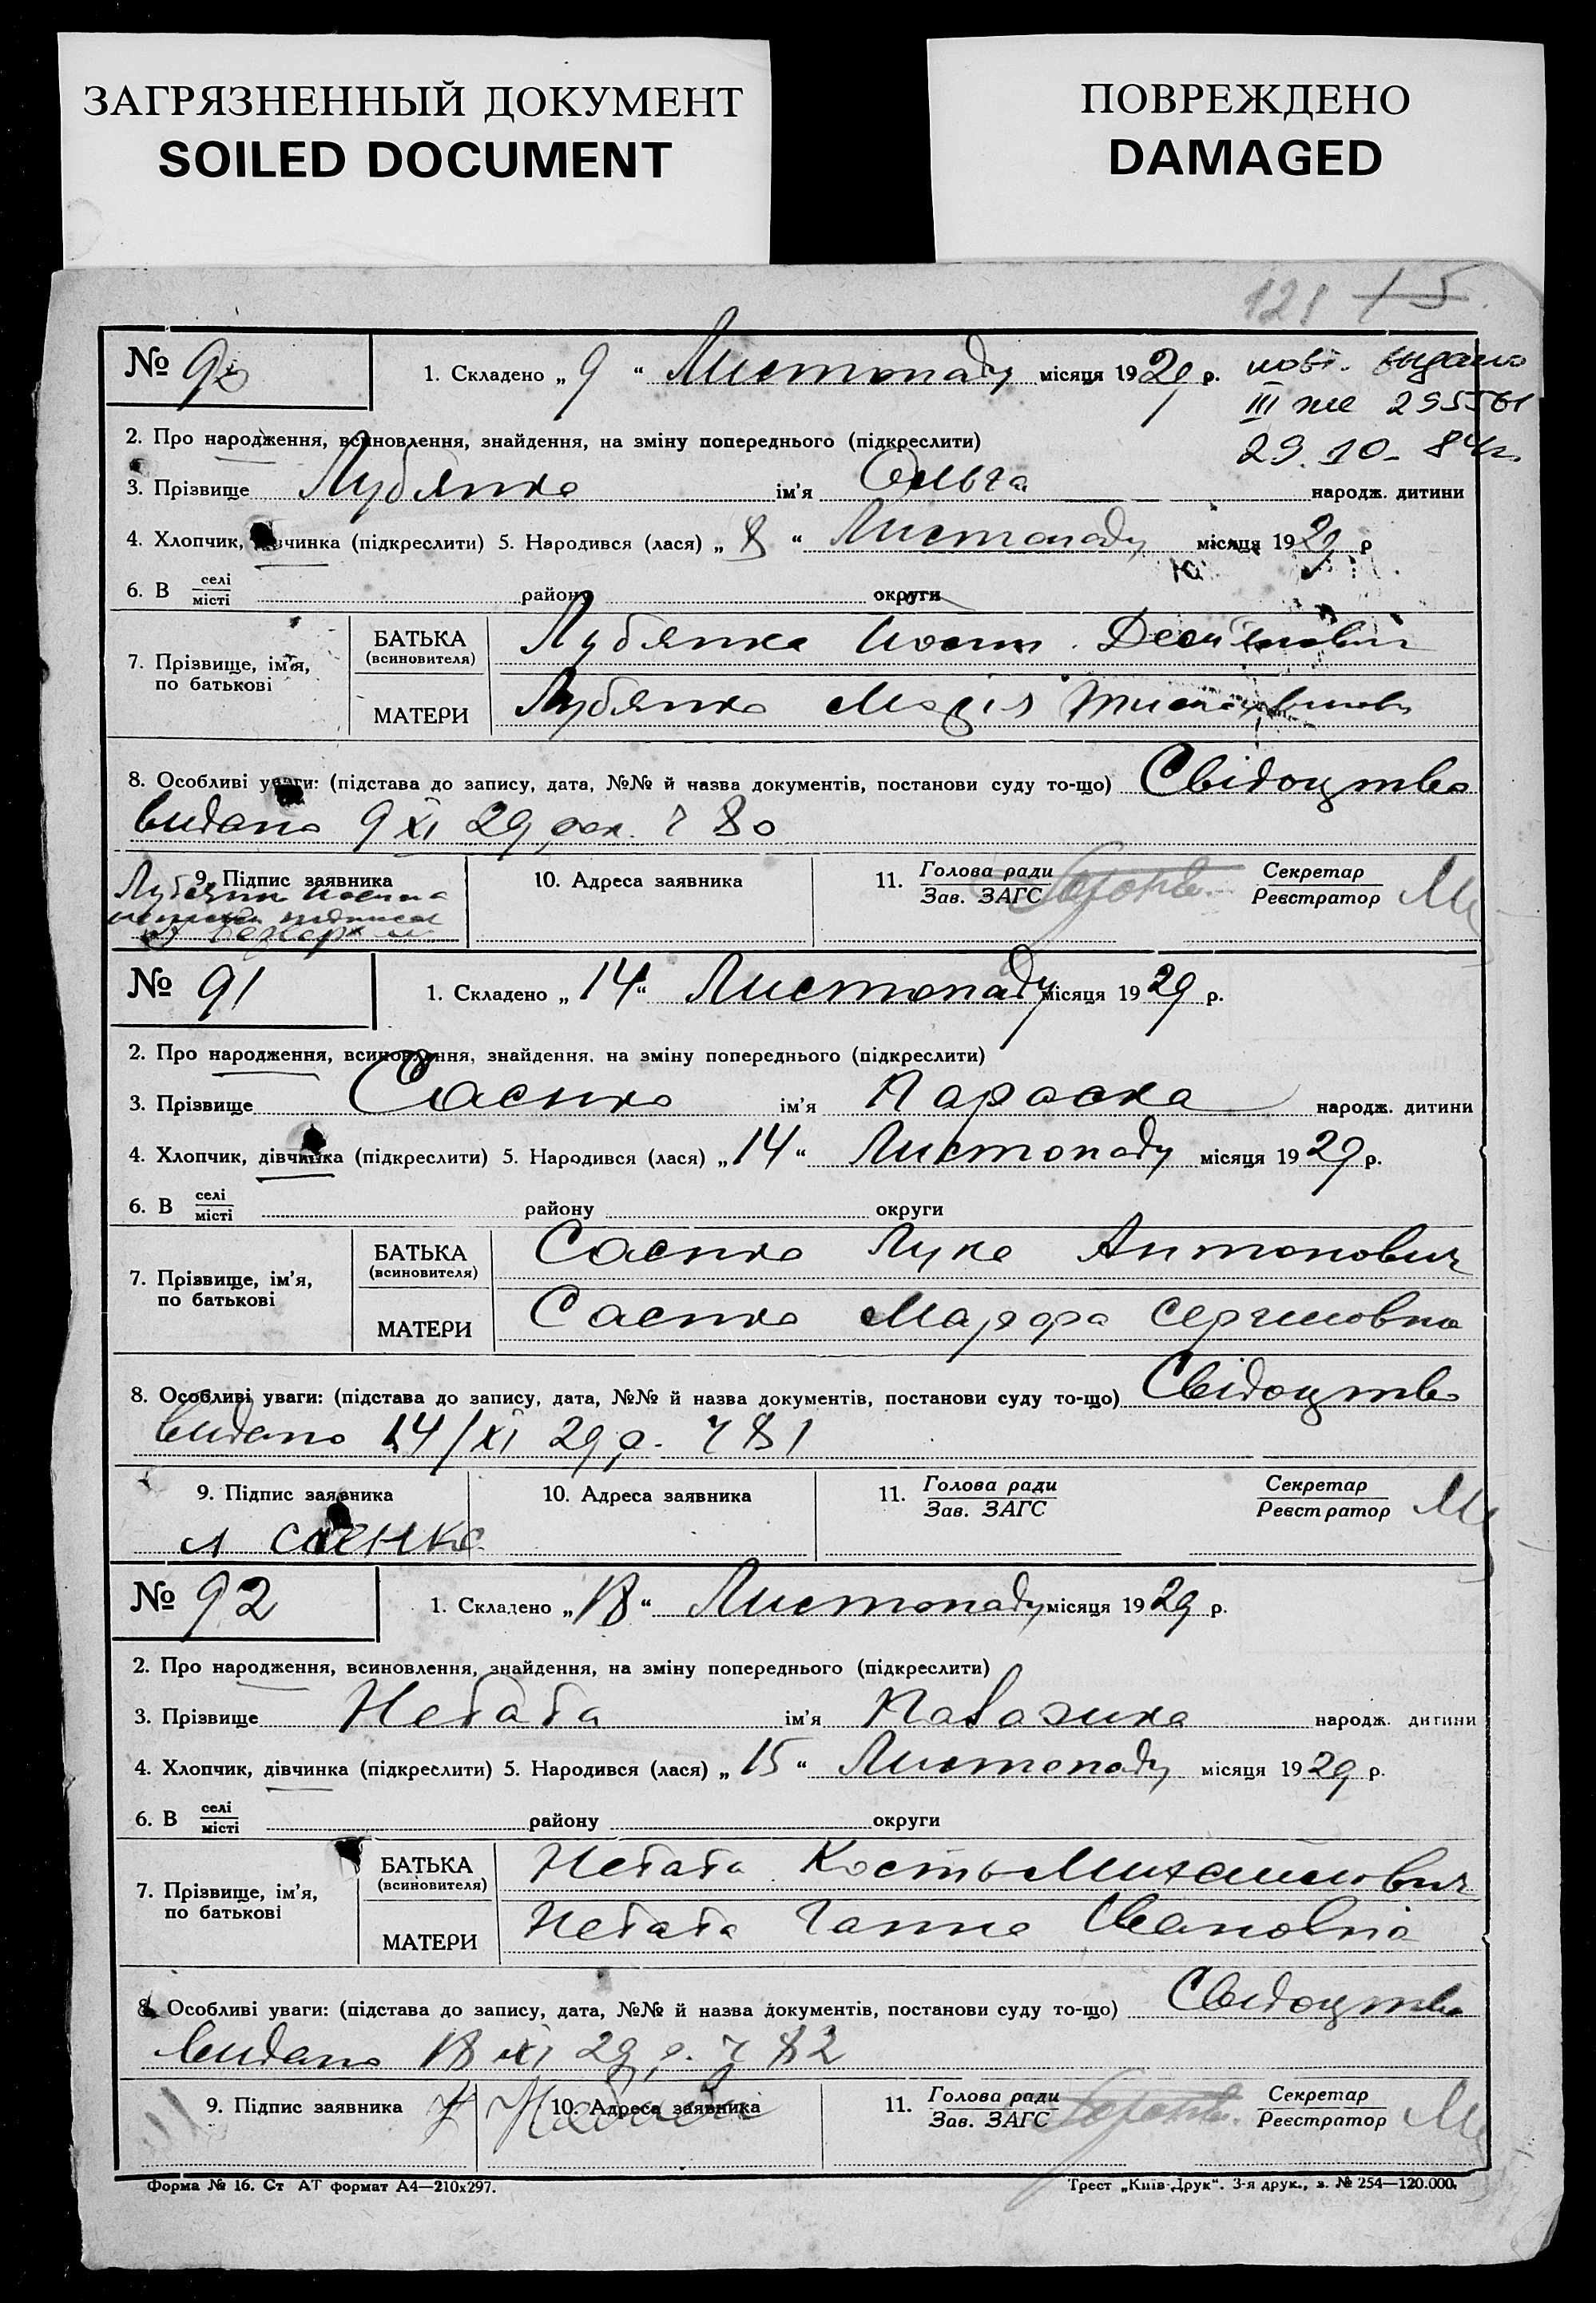 ЗАГРЯЗНЕННЫЙ ДОКУМЕНТ
SOILED DOCUMENT
ПОВРЕЖДЕНО
DAMAGED
121 15
№ 90
1. Складено „ 9 “ Листопаду місяця 1929 р.
повт. выдано
III ЖЕ 295561
29.10-84г.
2. Про народження, всиновлення, знайдення, на зміну попереднього (підкреслити)
3. Прізвище Лубянка ім'я Ольга народж. дитини
4. Хлопчик, дівчинка (підкреслити) 5. Народився (лася) „ 8 “ Листопаду місяця 1929 р
6. В селі/місті району округи
7. Прізвище, ім'я, по батькові
БАТЬКА (всиновителя) Лубянка
МАТЕРИ Лубянка Марія
8. Особливі уваги: (підстава до запису, дата, №№ й назва документів, постанови суду то-що) Свідоцтво
видано 9 XI 29 рок. ч 80
9. Підпис заявника
10. Адреса заявника
11. Голова ради/Зав. ЗАГС
Секретар/Реєстратор
№ 91
1. Складено „ 14 “ Листопаду місяця 1929 р.
2. Про народження, всиновлення, знайдення, на зміну попереднього (підкреслити)
3. Прізвище Саенко ім'я Параска народж. дитини
4. Хлопчик, дівчинка (підкреслити) 5. Народився (лася) „ 14 “ Листопаду місяця 1929 р.
6. В селі/місті району округи
7. Прізвище, ім'я, по батькові
БАТЬКА (всиновителя) Саенко Лука Антонович
МАТЕРИ Саенко Марфа Сергиовна
8. Особливі уваги: (підстава до запису, дата, №№ й назва документів, постанови суду то-що) Свідоцтво
видано 14/XI 29 р. ч 81
9. Підпис заявника
л саенко
10. Адреса заявника
11. Голова ради/Зав. ЗАГС
Секретар/Реєстратор
№ 92
1. Складено „ 18 “ Листопаду місяця 1929 р.
2. Про народження, всиновлення, знайдення, на зміну попереднього (підкреслити)
3. Прізвище Небаба ім'я народж. дитини
4. Хлопчик, дівчинка (підкреслити) 5. Народився (лася) „ 15 “ Листопаду місяця 1929 р.
6. В селі/місті району округи
7. Прізвище, ім'я, по батькові
БАТЬКА (всиновителя) Небаба Кость Михайлович
МАТЕРИ Небаба Ганна Івановна
8. Особливі уваги: (підстава до запису, дата, №№ й назва документів, постанови суду то-що) Свідоцтво
видано 18 XI 29 р. ч 82
9. Підпис заявника К Небаба
10. Адреса заявника
11. Голова ради/Зав. ЗАГС
Секретар/Реєстратор
Форма № 16. Ст АТ формат А4—210х297.
Трест „Київ-Друк“. 3-я друк., з. № 254—120.000.